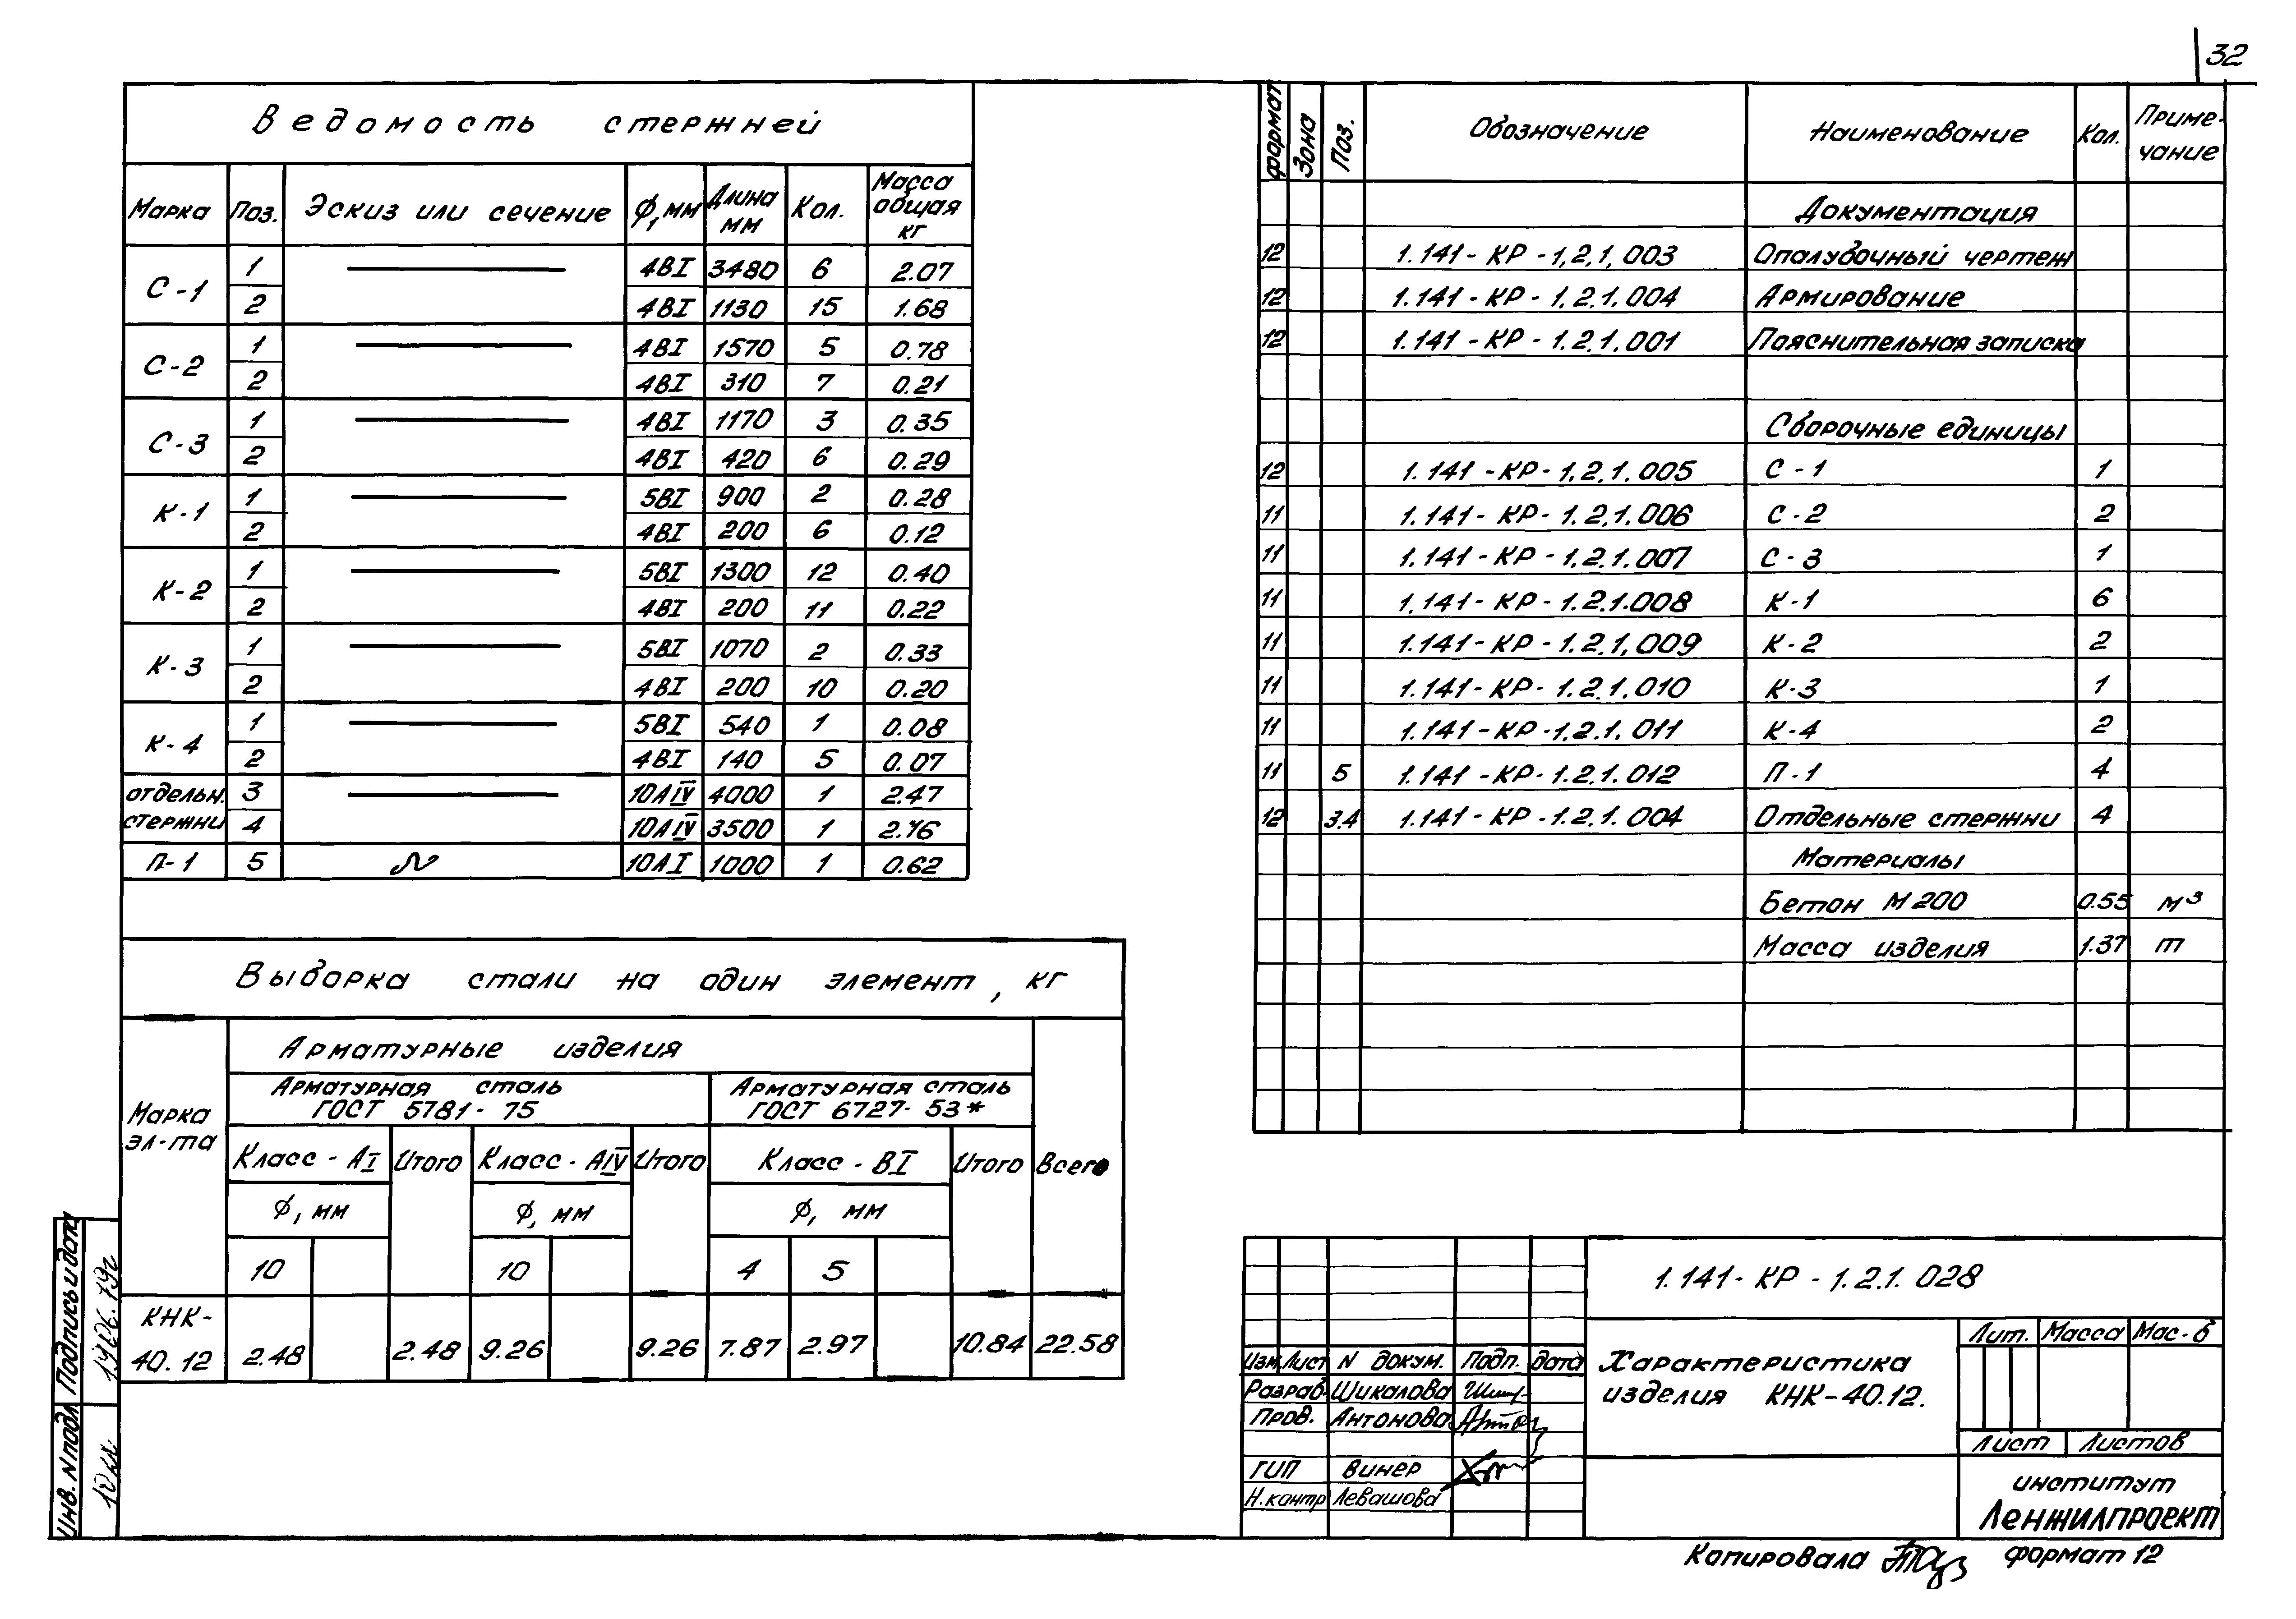 32
Ведомость стержней
Марка Поз. Эскиз или сечение ϕ, мм Длина мм Кол. Масса общая кг
С-1 1 4ВI 3480 6 2.07
2 4ВI 1130 15 1.68
С-2 1 4ВI 1570 5 0.78
2 4ВI 310 7 0.21
С-3 1 4ВI 1170 3 0.35
2 4ВI 420 6 0.29
К-1 1 5ВI 900 2 0.28
2 4ВI 200 6 0.12
К-2 1 5ВI 1300 12 0.40
2 4ВI 200 11 0.22
К-3 1 5ВI 1070 2 0.33
2 4ВI 200 10 0.20
К-4 1 5ВI 540 1 0.08
2 4ВI 140 5 0.07
отдельн. 3 10АIV 4000 1 2.47
стержни 4 10АIV 3500 1 2.16
П-1 5 10АI 1000 1 0.62
Выборка стали на один элемент, кг
Марка эл-та
Арматурные изделия
Арматурная сталь ГОСТ 5781-75
Арматурная сталь ГОСТ 6727-53*
Класс-АI Итого Класс-АIV Итого Класс-ВI Итого Всего
ϕ, мм ϕ, мм ϕ, мм
10 10 4 5
КНК-
40.12 2.48 2.48 9.26 9.26 7.87 2.97 10.84 22.58
формат Зона Поз. Обозначение Наименование Кол. Приме-
чание
Документация
12 1.141-КР-1.2.1.003 Опалубочный чертеж
12 1.141-КР-1.2.1.004 Армирование
12 1.141-КР-1.2.1.001 Пояснительная записка
Сборочные единицы
12 1.141-КР-1.2.1.005 С-1 1
11 1.141-КР-1.2.1.006 С-2 2
11 1.141-КР-1.2.1.007 С-3 1
11 1.141-КР-1.2.1.008 К-1 6
11 1.141-КР-1.2.1.009 К-2 2
11 1.141-КР-1.2.1.010 К-3 1
11 1.141-КР-1.2.1.011 К-4 2
11 5 1.141-КР-1.2.1.012 П-1 4
12 3.4 1.141-КР-1.2.1.004 Отдельные стержни 4
Материалы
Бетон М200 0.55 м³
Масса изделия 1.37 т
1.141-КР-1.2.1.028
Изм. Лист N докум. Подп. дата
Разраб. Шикалова
Пров. Антонова
ГИП Винер
Н.контр Левашова
Характеристика
изделия КНК-40.12.
Лит. Масса Мас-б
Лист Листов
институт
Ленжилпроект
Копировала формат 12
Инв. N подл Подпись и дата